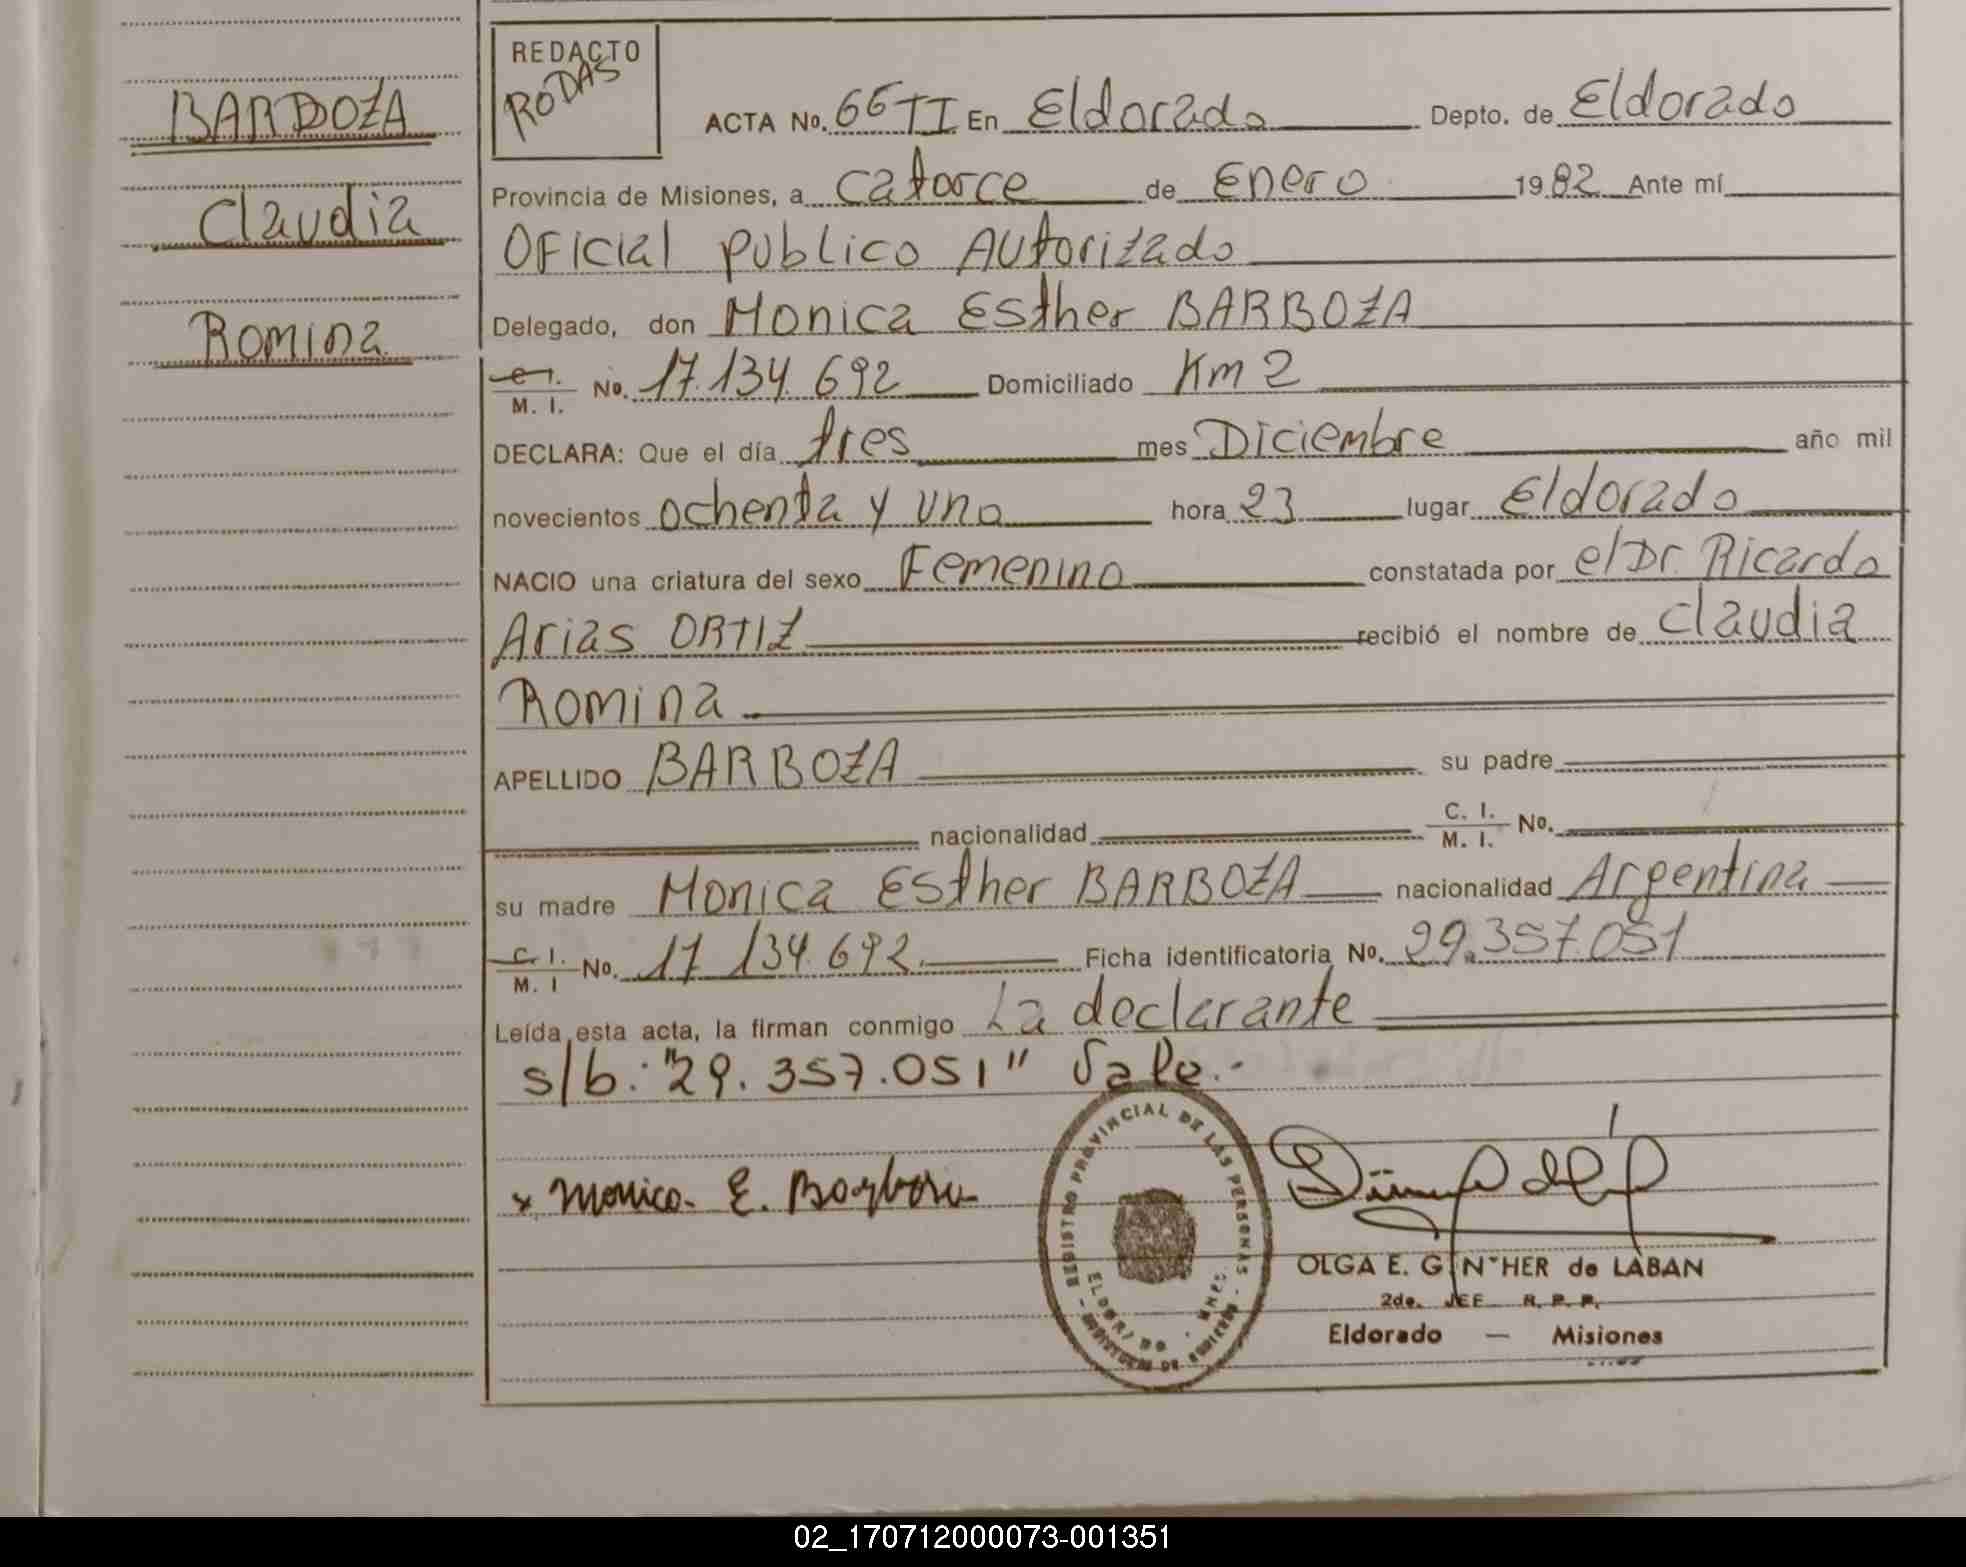 BARBOZA
Claudia
Romina
REDACTO
RODAS
ACTA No. 66 TI En Eldorado Depto. de Eldorado
Provincia de Misiones, a catorce de Enero 1982 Ante mí
Oficial publico Autorizado
Delegado, don Monica Esther BARBOZA
C. I. / M. I. No. 17.134.692 Domiciliado Km 2
DECLARA: Que el día tres mes Diciembre año mil
novecientos ochenta y uno hora 23 lugar Eldorado
NACIO una criatura del sexo Femenino constatada por el Dr. Ricardo
Arias ORTIZ recibió el nombre de Claudia
Romina
APELLIDO BARBOZA su padre
nacionalidad C. I. / M. I. No.
su madre Monica Esther BARBOZA nacionalidad Argentina
C. I. / M. I No. 17 134.692 Ficha identificatoria No. 29.357.051
Leída esta acta, la firman conmigo La declarante
s/b: "29.357.051" Vale.-
x Monica E. Barboza
REGISTRO PROVINCIAL DE LAS PERSONAS
ELDORADO - MNES.
OLGA E. GÜNTHER de LABAN
2do. JEFE R. P. P.
Eldorado — Misiones
02_170712000073-001351